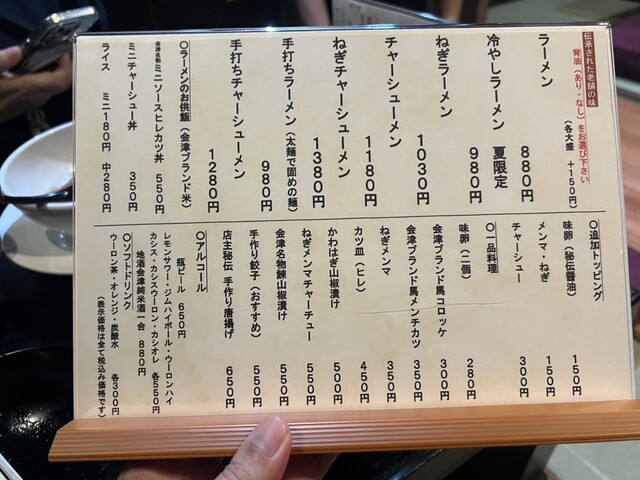 伝承された老舗の味
背油（あり・なし）をお選び下さい
（各大盛 +150円）
ラーメン 880円
冷やしラーメン 夏限定 980円
ねぎラーメン 1030円
チャーシューメン 1180円
ねぎチャーシューメン 1380円
手打ちラーメン（太麺で固めの麺） 980円
手打ちチャーシューメン 1280円
〇ラーメンのお供飯（会津ブランド米）
会津名物ミニソースヒレカツ丼 550円
ミニチャーシュー丼 350円
ライス ミニ180円 中280円
〇追加トッピング
味卵（秘伝醤油） 150円
メンマ・ねぎ 150円
チャーシュー 300円
〇一品料理
味卵（二個） 280円
会津ブランド馬コロッケ 300円
会津ブランド馬メンチカツ 350円
ねぎメンマ 350円
カツ皿（ヒレ） 450円
かわはぎ山椒漬け 500円
ねぎメンマチャーチュー 550円
会津名物鰊山椒漬け 550円
手作り餃子（おすすめ） 550円
店主秘伝 手作り唐揚げ 650円
〇アルコール
瓶ビール 650円
レモンサワー・ジムハイボール・ウーロンハイ
カシス・カシスウーロン・カシオレ 各550円
地酒会津純米酒一合 880円
〇ソフトドリンク
ウーロン茶・オレンジ・炭酸水 各300円
（表示価格は全て税込み価格です）